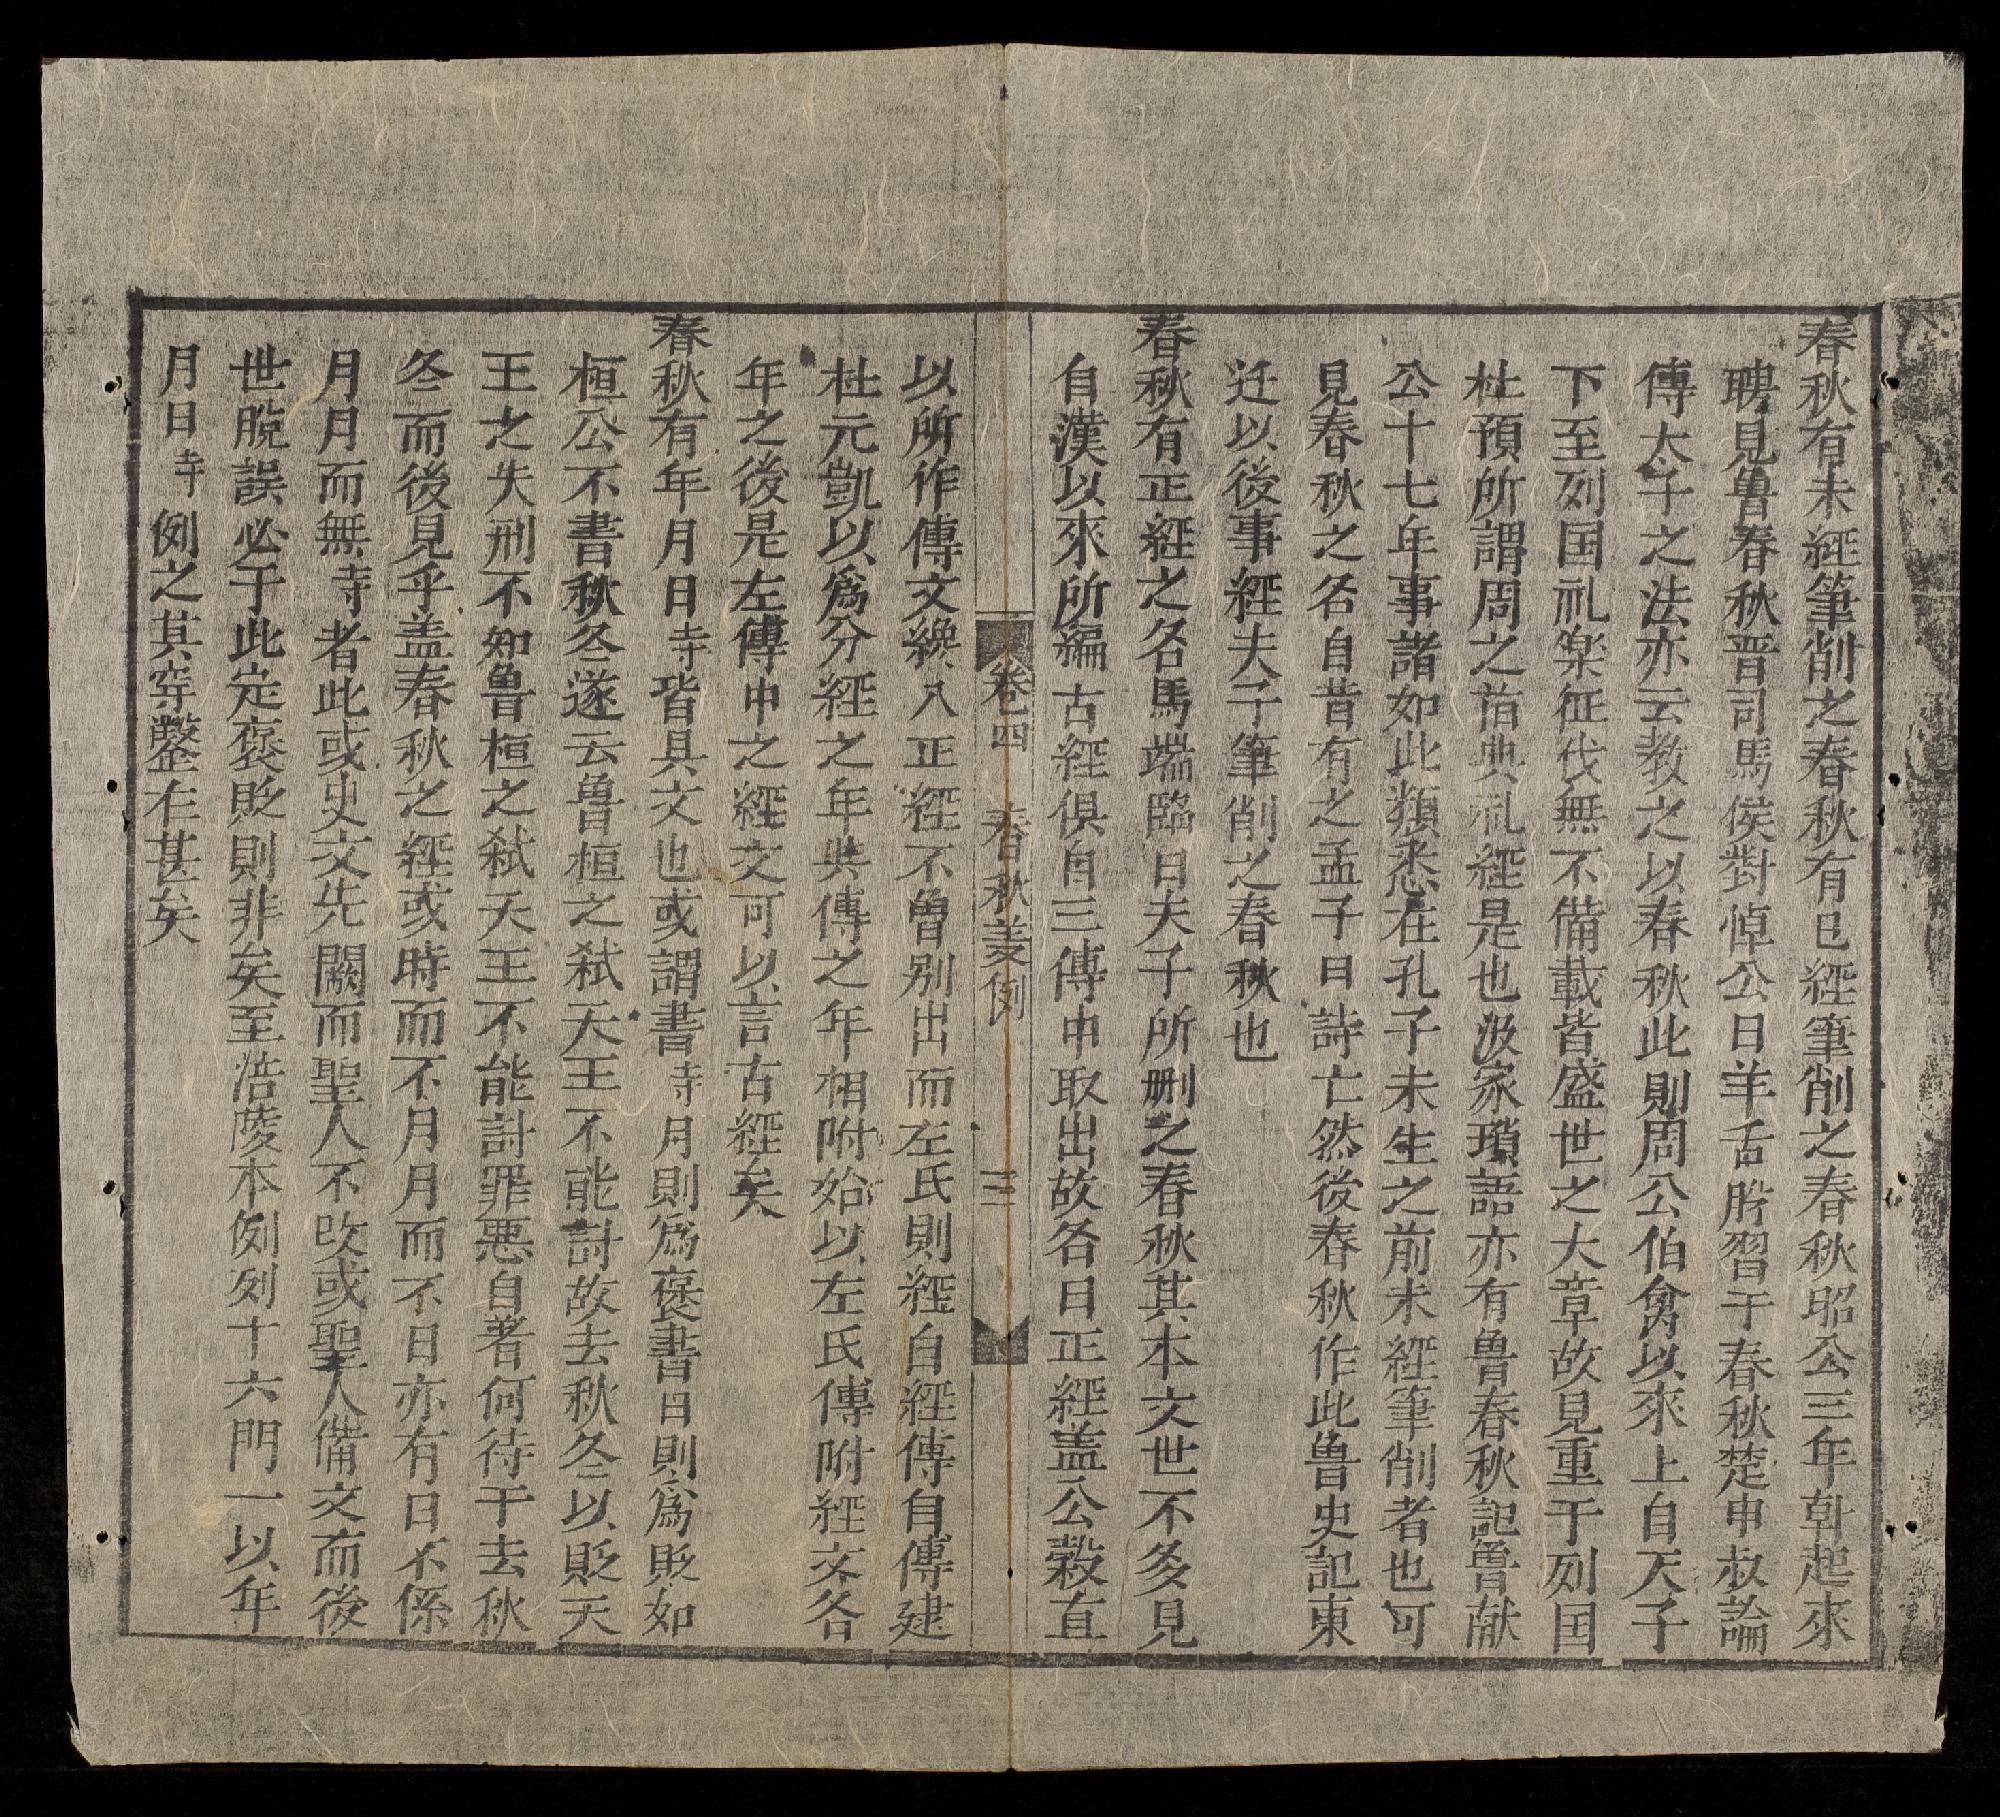 春秋有未經筆削之春秋有已經筆削之春秋昭公三年韩起來
聘見魯春秋晋司馬侯對悼公日羊舌肹習于春秋楚申叔論
傳太子之法亦云教之以春秋此則周公伯禽以來上自天子
下至列国礼楽征伐無不備載皆盛世之大章故見重于列国
杜預所謂周之舊典礼經是也汲冢瑣語亦有魯春秋記魯献
公十七年事諸如此類悉在孔子未生之前未經筆削者也可
見春秋之名自昔有之孟子曰詩亡然後春秋作此魯史記東
迁以後事經夫子筆削之春秋也
春秋有正経之名馬端臨日夫子所删之春秋其本文世不多見
自漢以來所編古經俱自三傳中取出故各日正經盖公穀直
卷四 春秋義例 三
以所作傳文繞入正經不曾别出而左氏則經自經傳自傳建
杜元凱以為分經之年與傳之年相附始以左氏傳附經文各
年之後是左傳中之經文可以言古經矣
春秋有年月日寺皆具文也或謂書寺月則為褒書日則為貶如
桓公不書秋冬遂云魯桓之弑天王不能討故去秋冬以貶天
王之失刑不知魯桓之弑天王不能討罪悪自著何待于去秋
冬而後見乎盖春秋之經或時而不月月而不日亦有日不係
月月而無寺者此或史文先闕而聖人不改或聖人備文而後
世脫誤必于此定褒貶則非矣至涪陵本例列十六門一以年
月日寺例之其穿鑿在甚矣